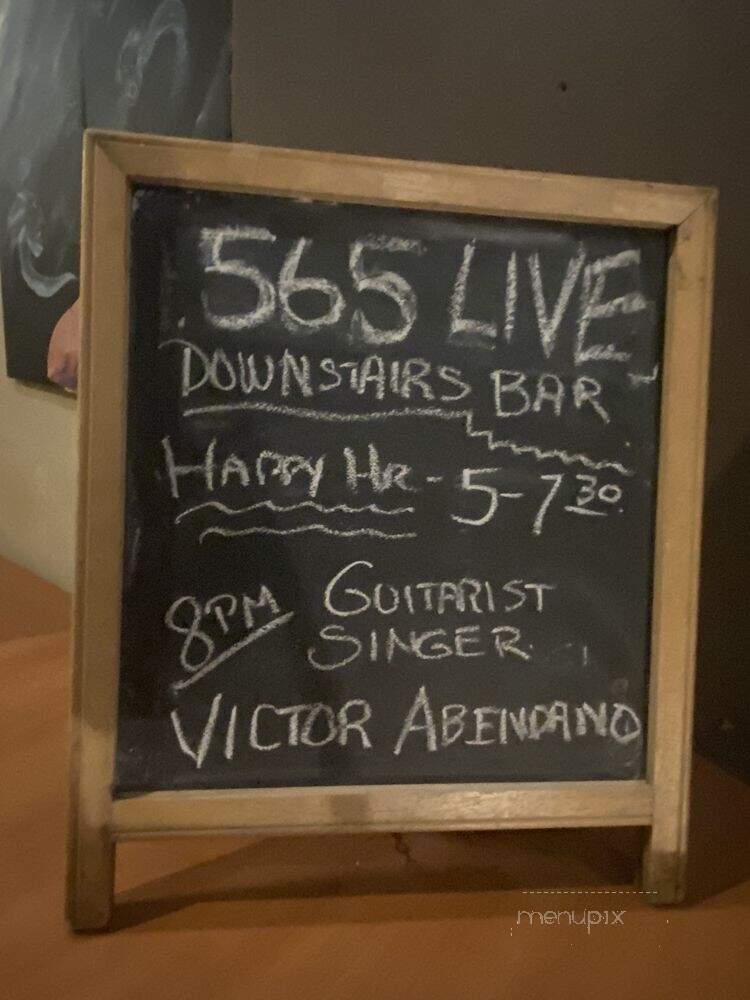 565 LIVE
DOWNSTAIRS BAR
HAPPY HR - 5-7 30
8PM GUITARIST
SINGER
VICTOR ABENDANO
menupix